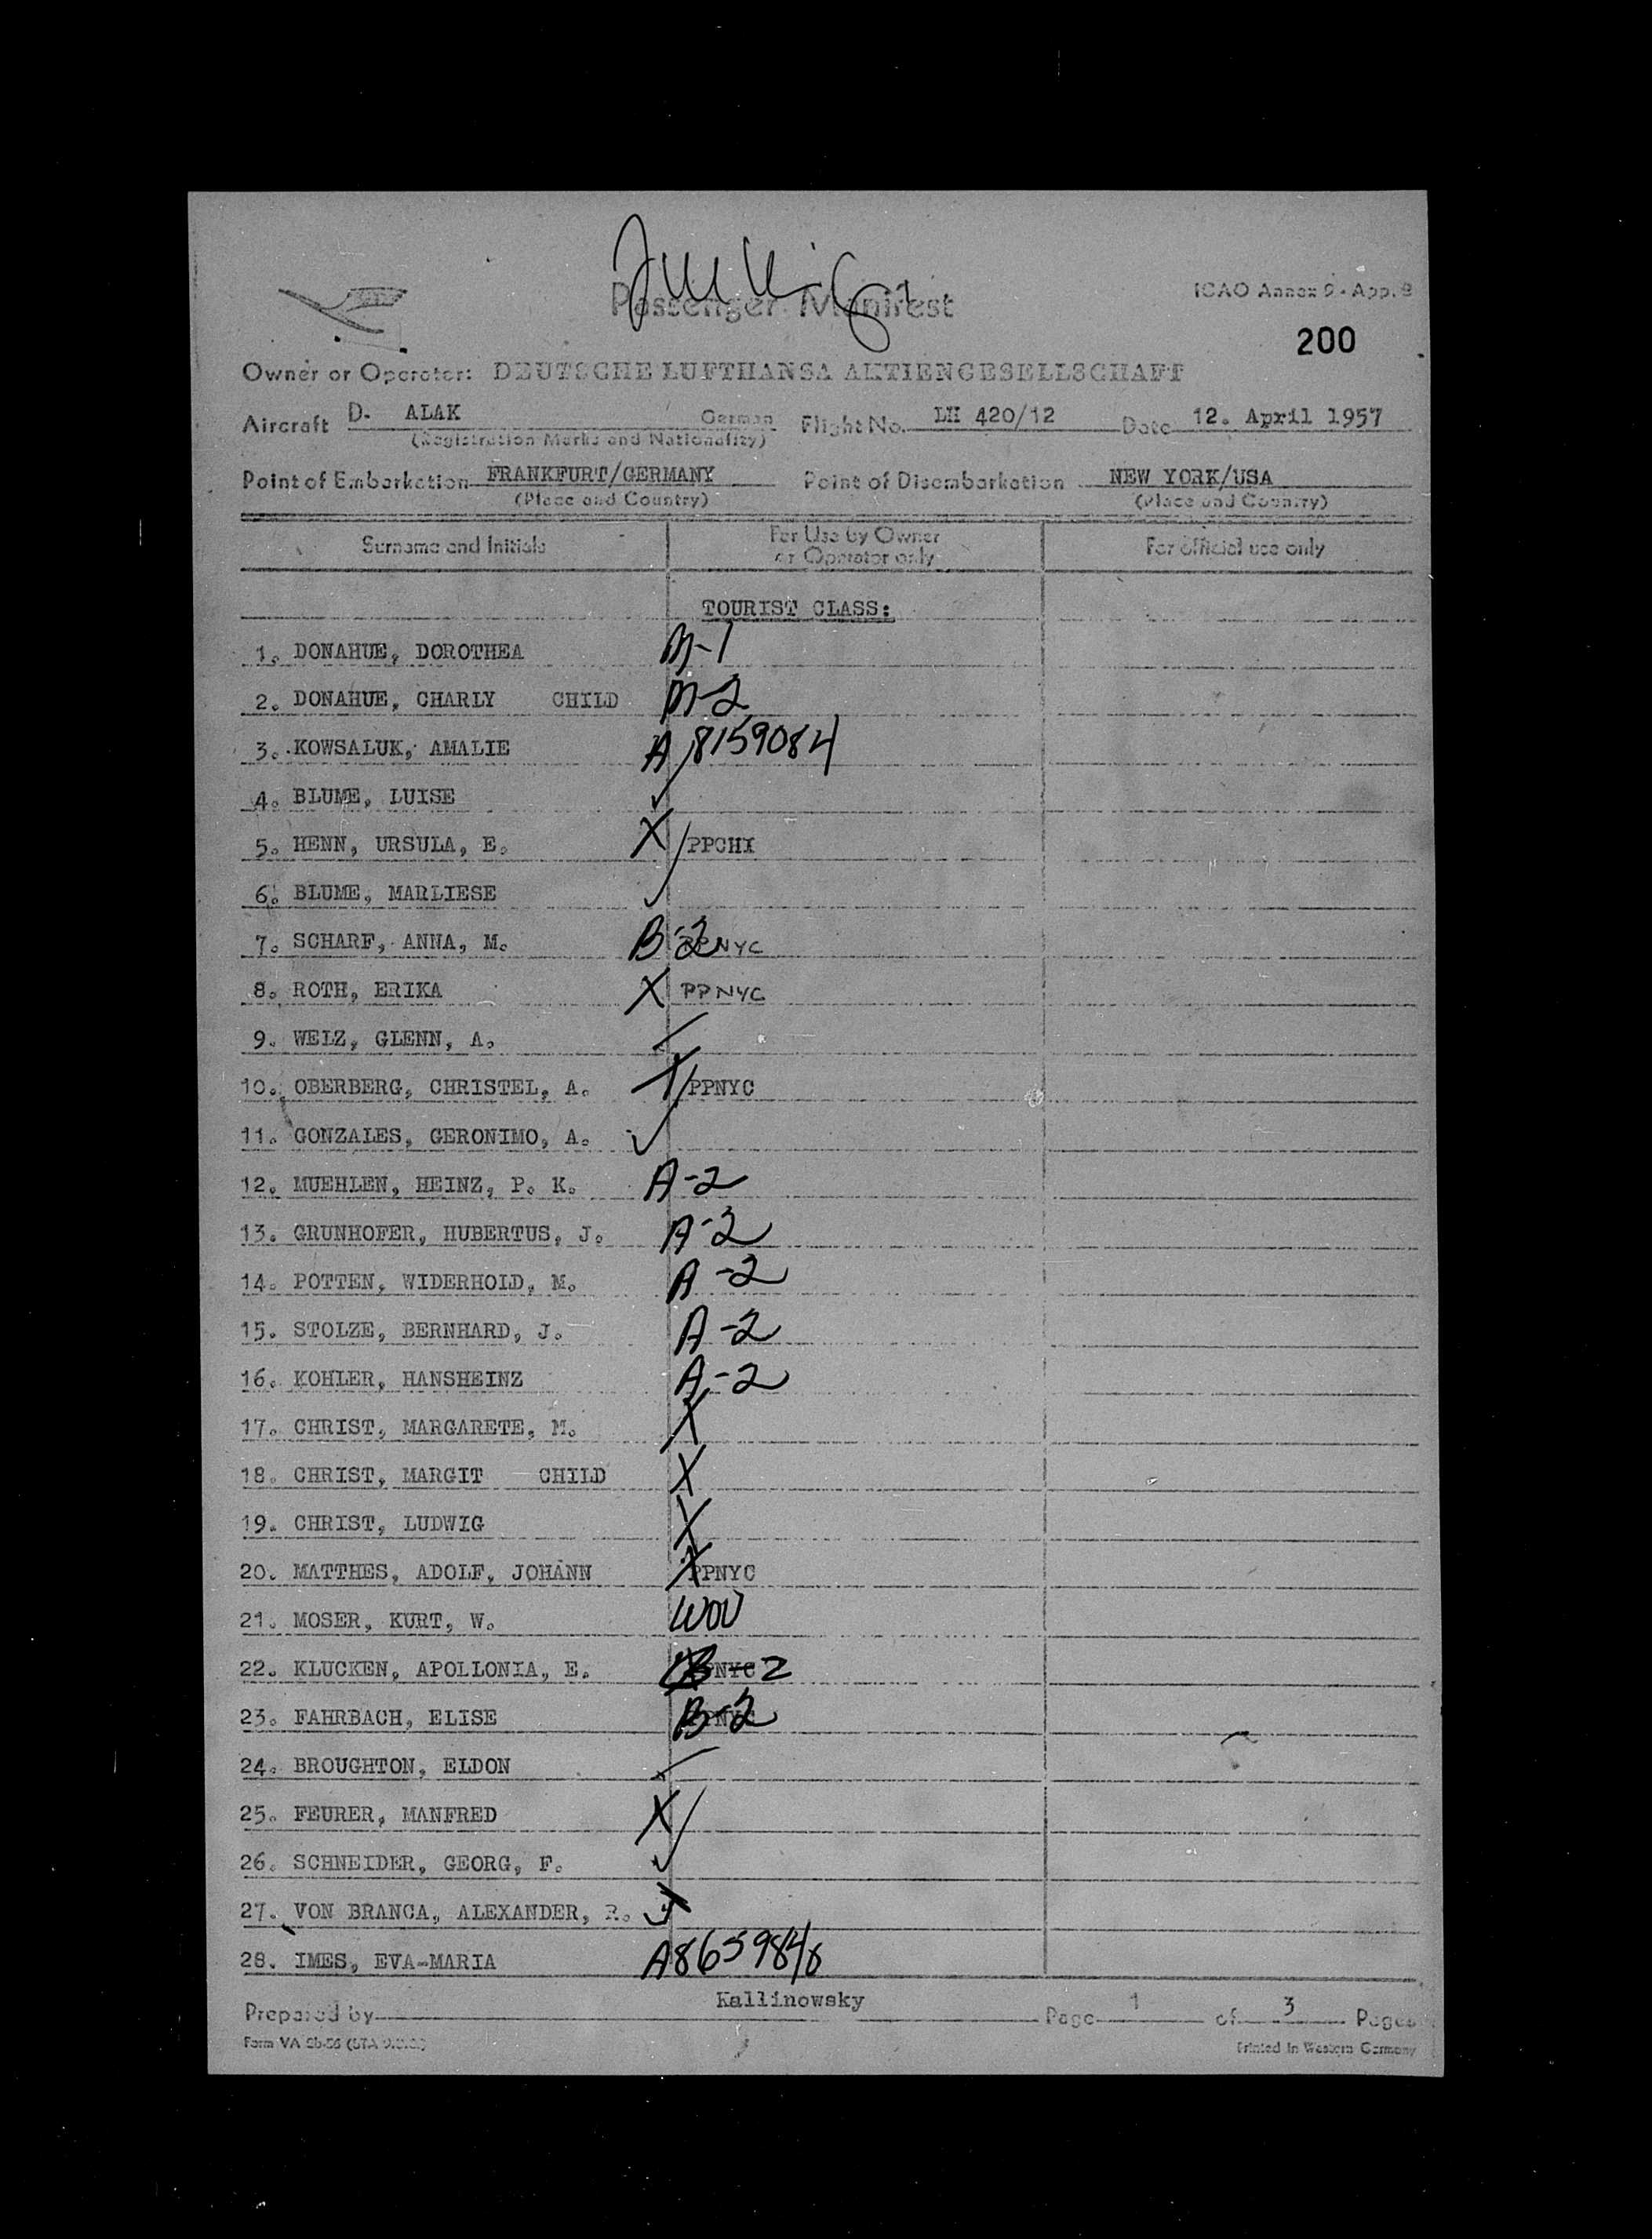 Passenger Manifest
ICAO Annex 9 - App. 8
200
Owner or Operator: DEUTSCHE LUFTHANSA AKTIENGESELLSCHAFT
Aircraft D. ALAK German Flight No. LH 420/12 Date 12. April 1957
(Registration Marks and Nationality)
Point of Embarkation FRANKFURT/GERMANY Point of Disembarkation NEW YORK/USA
(Place and Country) (Place and Country)
Surname and Initials For Use by Owner or Operator only For official use only
TOURIST CLASS:
1. DONAHUE, DOROTHEA M-1
2. DONAHUE, CHARLY CHILD M-2
3. KOWSALUK, AMALIE A 8159084
4. BLUME, LUISE
5. HENN, URSULA, E. X PPCHI
6. BLUME, MARLIESE
7. SCHARF, ANNA, M. B-2 PPNYC
8. ROTH, ERIKA X PPNYC
9. WELZ, GLENN, A.
10. OBERBERG, CHRISTEL, A. X PPNYC
11. GONZALES, GERONIMO, A.
12. MUEHLEN, HEINZ, P. K. A-2
13. GRUNHOFER, HUBERTUS, J. A-2
14. POTTEN, WIDERHOLD, M. A-2
15. STOLZE, BERNHARD, J. A-2
16. KOHLER, HANSHEINZ A-2
17. CHRIST, MARGARETE, M. X
18. CHRIST, MARGIT CHILD X
19. CHRIST, LUDWIG X
20. MATTHES, ADOLF, JOHANN X PPNYC
21. MOSER, KURT, W. WOV
22. KLUCKEN, APOLLONIA, E. B-2
23. FAHRBACH, ELISE B-2
24. BROUGHTON, ELDON
25. FEURER, MANFRED X
26. SCHNEIDER, GEORG, F.
27. VON BRANCA, ALEXANDER, R.
28. IMES, EVA-MARIA
Prepared by Kallinowsky Page 1 of 3 Pages
Printed in Western Germany